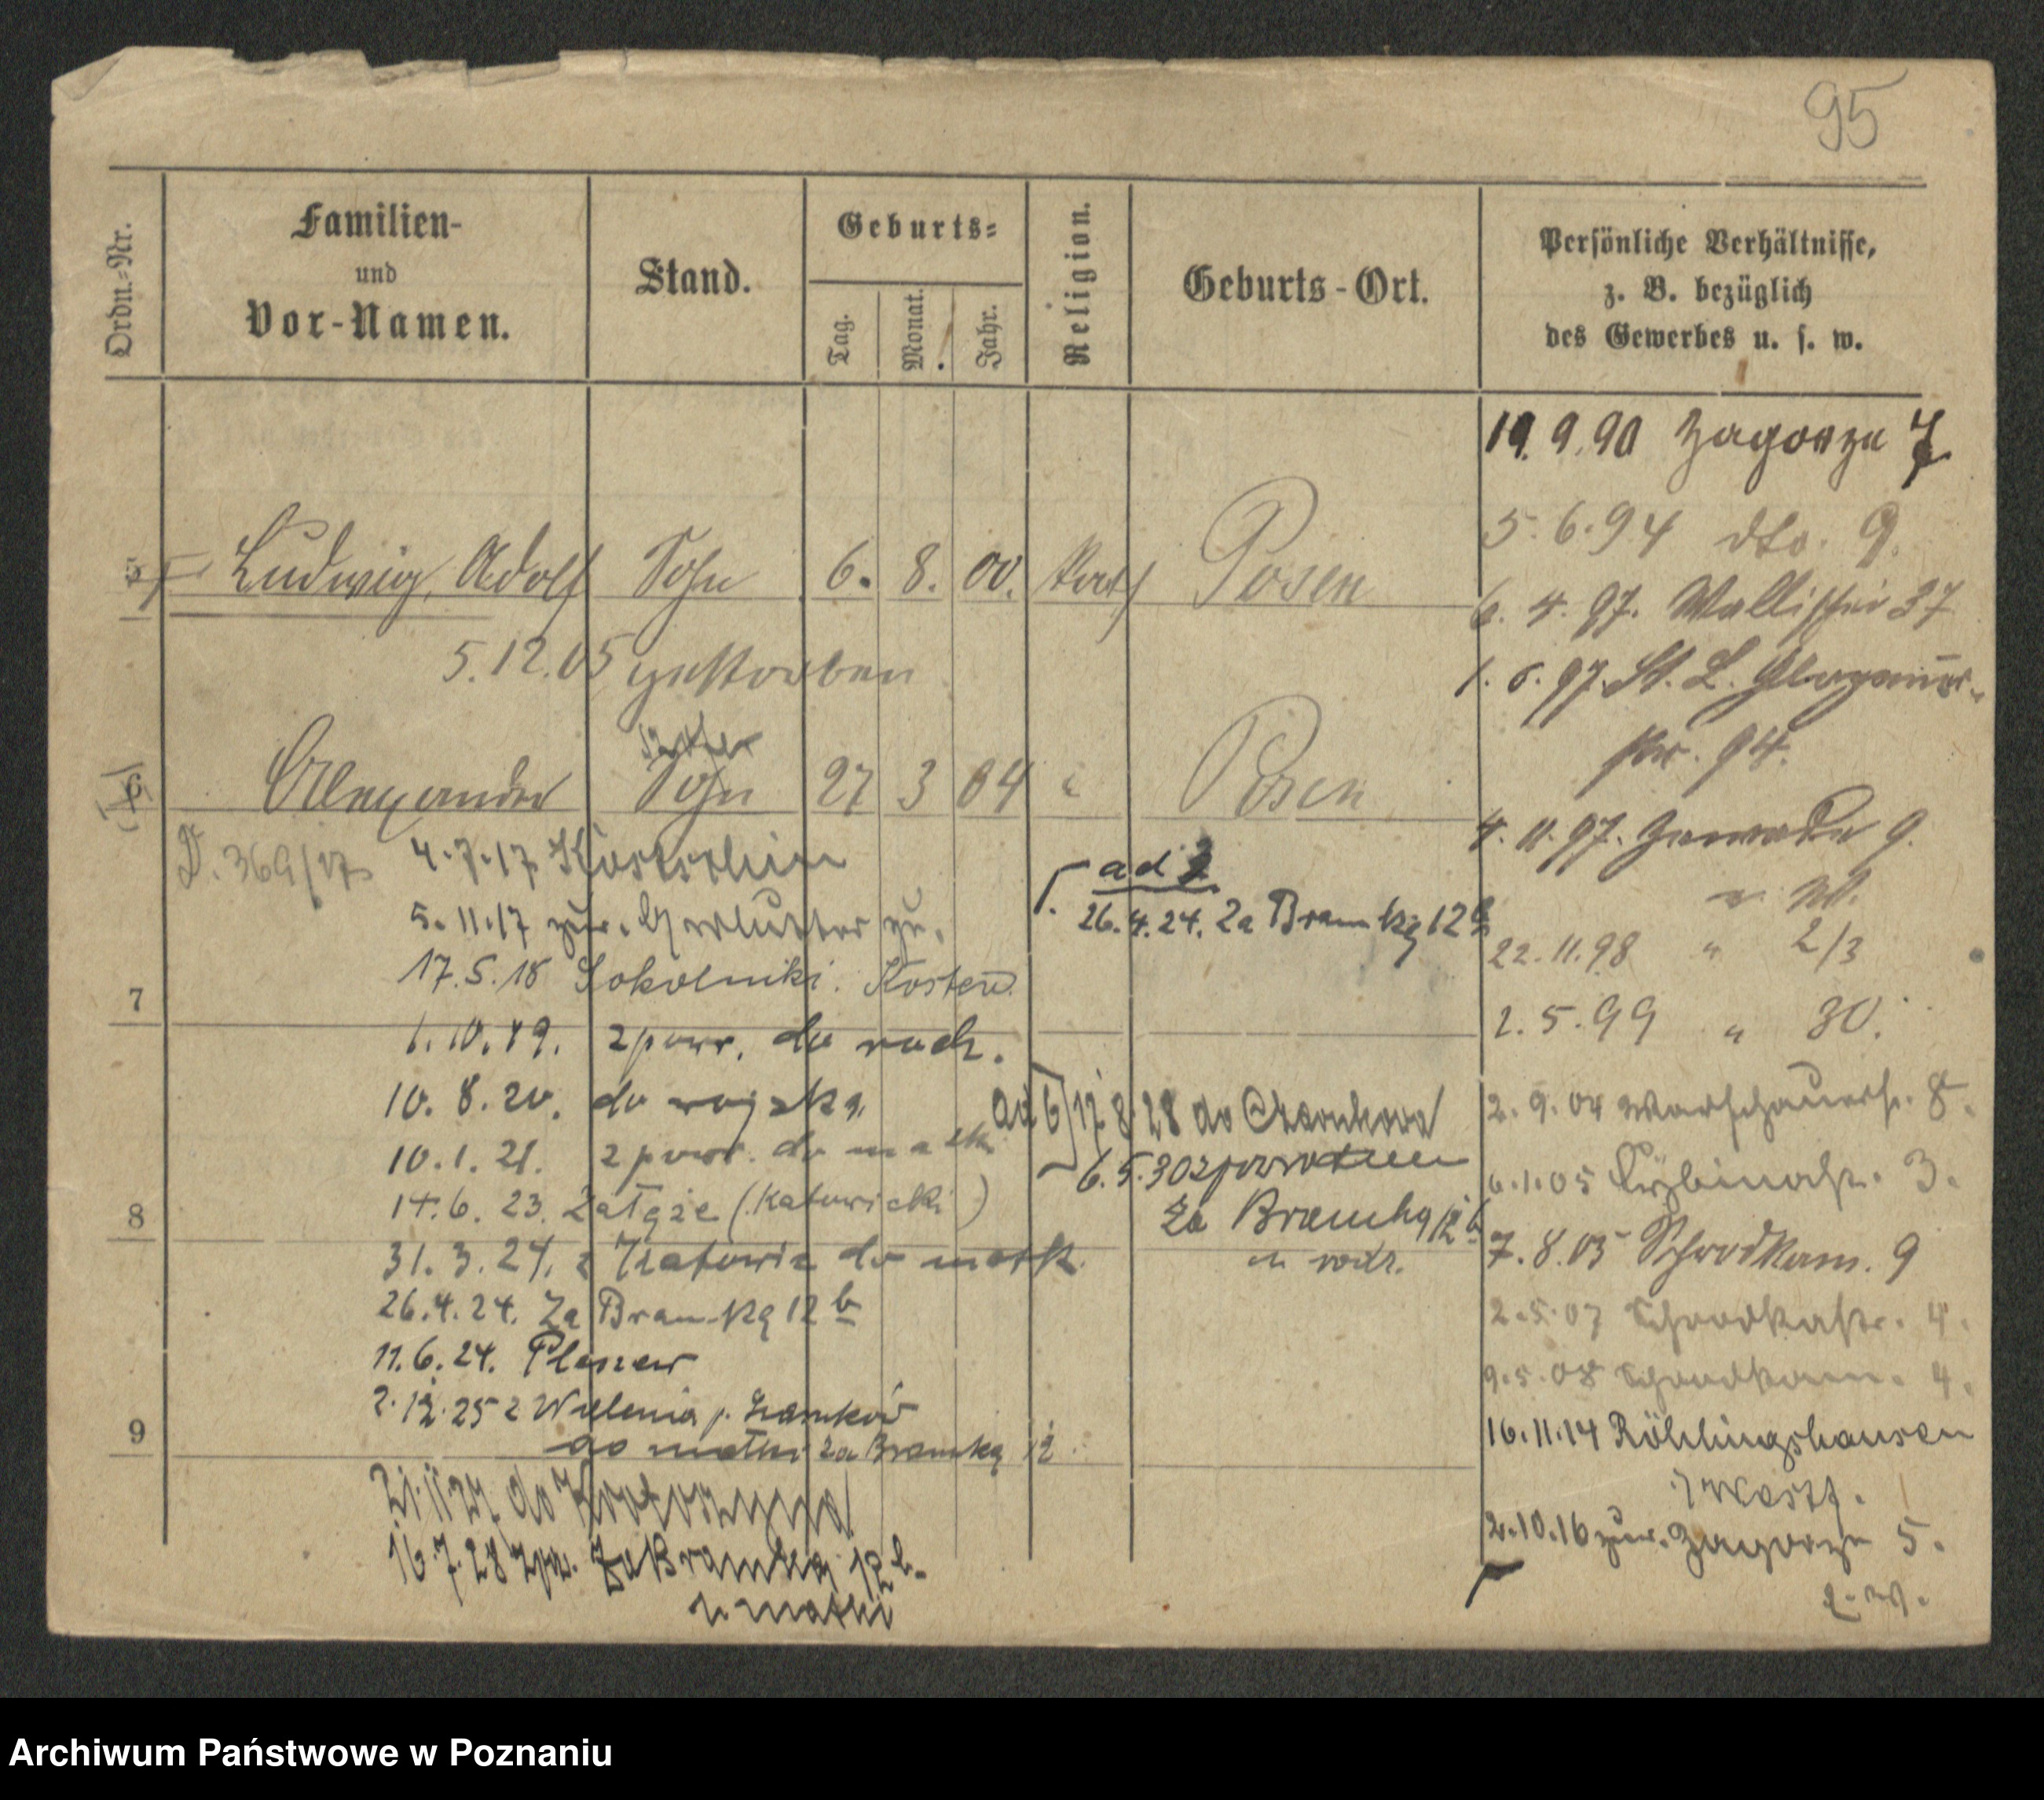 95
Ordn.-Nr.
Familien-
und
Vor-Namen.
Stand.
Geburts-
Tag.
Monat.
Jahr.
Religion.
Geburts-Ort.
Persönliche Verhältnisse,
z. B. bezüglich
des Gewerbes u. s. w.
19.9.90 Zagorze 7
5.6.94 dto. 9.
5 Ludwig, Adolf Sohn 6. 8. 00. kath Posen
6.4.97. Wallischei 37
5.12.05 gestorben
1.6.97. St. L. Glogauer-
str. 94.
6 Alexander Sohn 27 3 04 " Posen
4.11.97. Zawade 9.
D. 369/17
4.7.17 Kostschin
ad 2
5.11.17 zur. Mutter zu.
26.4.24. Za Bramką 12b
22.11.98 " 2/3
17.5.18 Sokolniki.
7
2.5.99 " 30.
1.10.19. z powr. do rodz.
10.8.20. do wojska
ad 6) 17.8.28 do Czarnkowa
2.9.04 Warschauerstr. 8.
10.1.21. z powr. do matki
6.5.30 z powrotem
6.1.05 Cybinastr. 3.
14.6.23. Załęże (Katowicki)
Za Bramką 12b
8
7.8.05 Schrodkam. 9
31.3.24. z Katowic do matk.
u rodz.
26.4.24. Za Bramką 12b
2.5.07 Schrodkastr. 4.
11.6.24. Pleszew
9.5.08 Schrodkam. 4.
2.12.25 z Wielenia p. Czarnków
16.11.14 Röhlinghausen
9
do matki za Bramką 12
i/Westf.
21.11.27 do Krotoszyna
2.10.16 zur. Zagorze 5.
16.7.28 zpr. Za Bramką 12b.
u matki
Archiwum Państwowe w Poznaniu